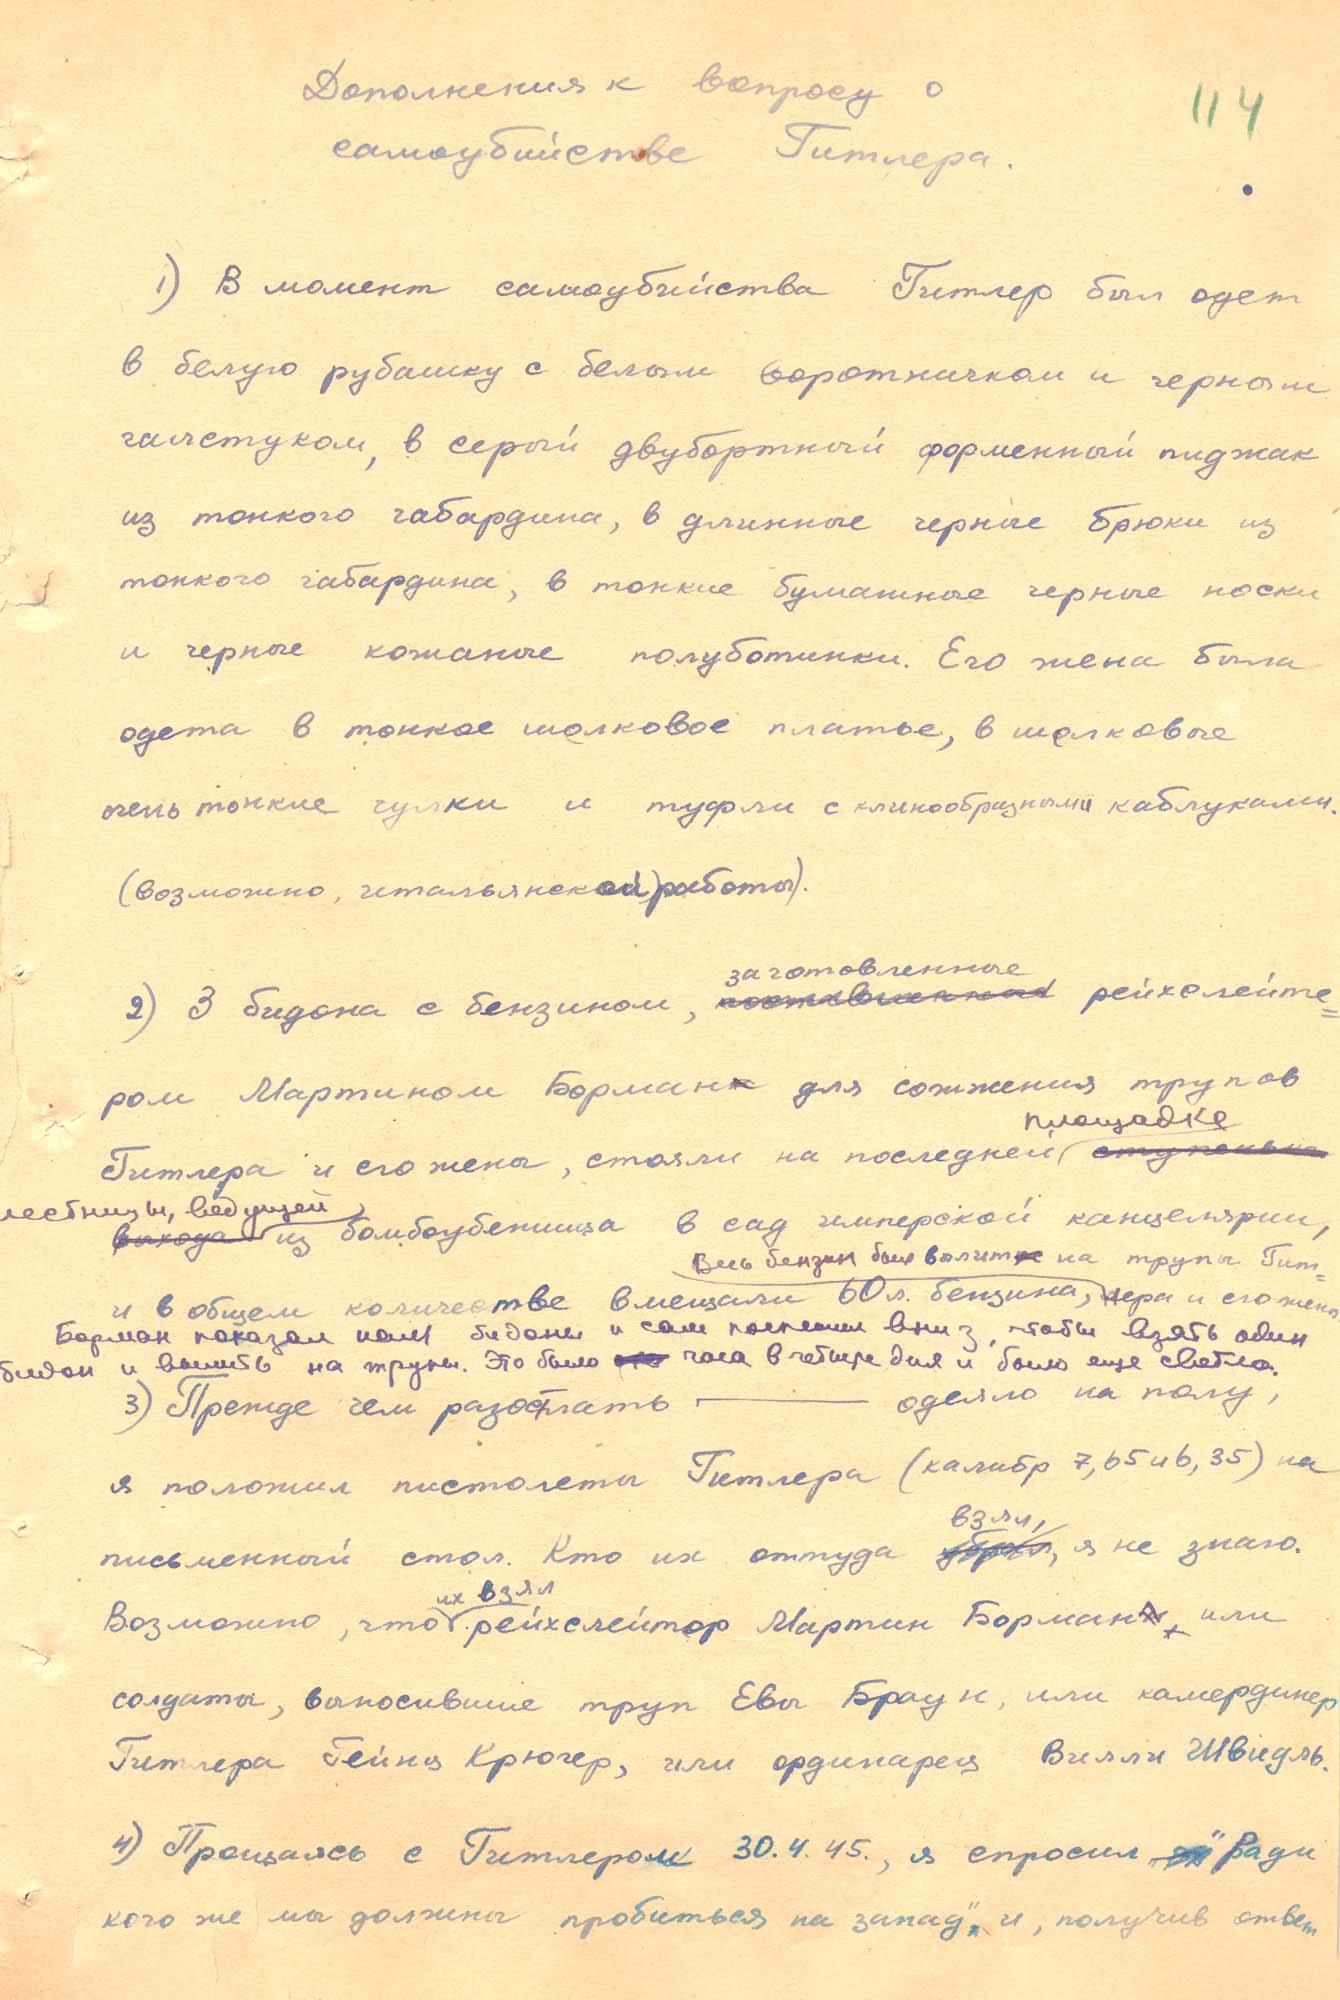 114
Дополнения к вопросу о
самоубийстве Гитлера.
1) В момент самоубийства Гитлер был одет
в белую рубашку с белым воротничком и черным
галстуком, в серый двубортный форменный пиджак
из тонкого габардина, в длинные черные брюки из
тонкого габардина, в тонкие бумажные черные носки
и черные кожаные полуботинки. Его жена была
одета в тонкое шолковое платье, в шолковые
очень тонкие чулки и туфли с клинообразными каблуками.
(возможно, итальянской работы).
заготовленные
2) 3 бидона с бензином, рейхслейте=
ром Мартином Борман для сожжения трупов
площадке
Гитлера и его жены, стояли на последней ступеньке
лестницы, ведущей
выхода из бомбоубежища в сад имперской канцелярии,
Весь бензин был вылит на трупы Гит=
и в общем количестве вмещали 60 л. бензина, лера и его жены.
Борман показал нам бидоны и сам поспешил вниз, чтобы взять один
бидон и вылить на трупы. Это было часа в четыре дня и было еще светло.
3) Прежде чем разостлать одеяло на полу,
я положил пистолеты Гитлера (калибр 7,65 и 6,35) на
взял,
письменный стол. Кто их оттуда убрал, я не знаю.
их взял
Возможно, что рейхслейтор Мартин Борман, или
солдаты, выносившие труп Евы Браун, или камердинер
Гитлера Гейнц Крюгер, или ординарец Вилли Швидль.
4) Прощаясь с Гитлером 30.4.45., я спросил „Ради
кого же мы должны пробиться на запад", и, получив ответ